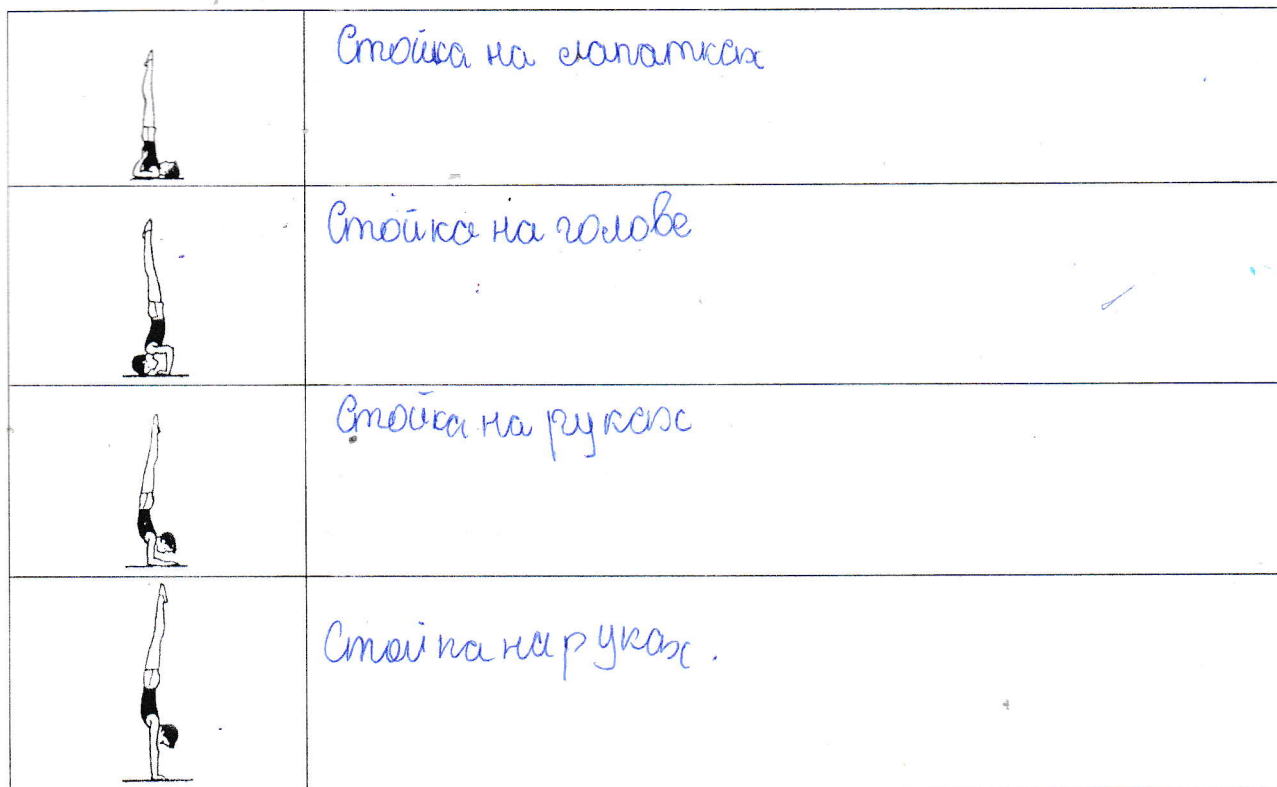 Стойка на лапатках
Стойка на голове
Стойка на руках
Стойка на руках.